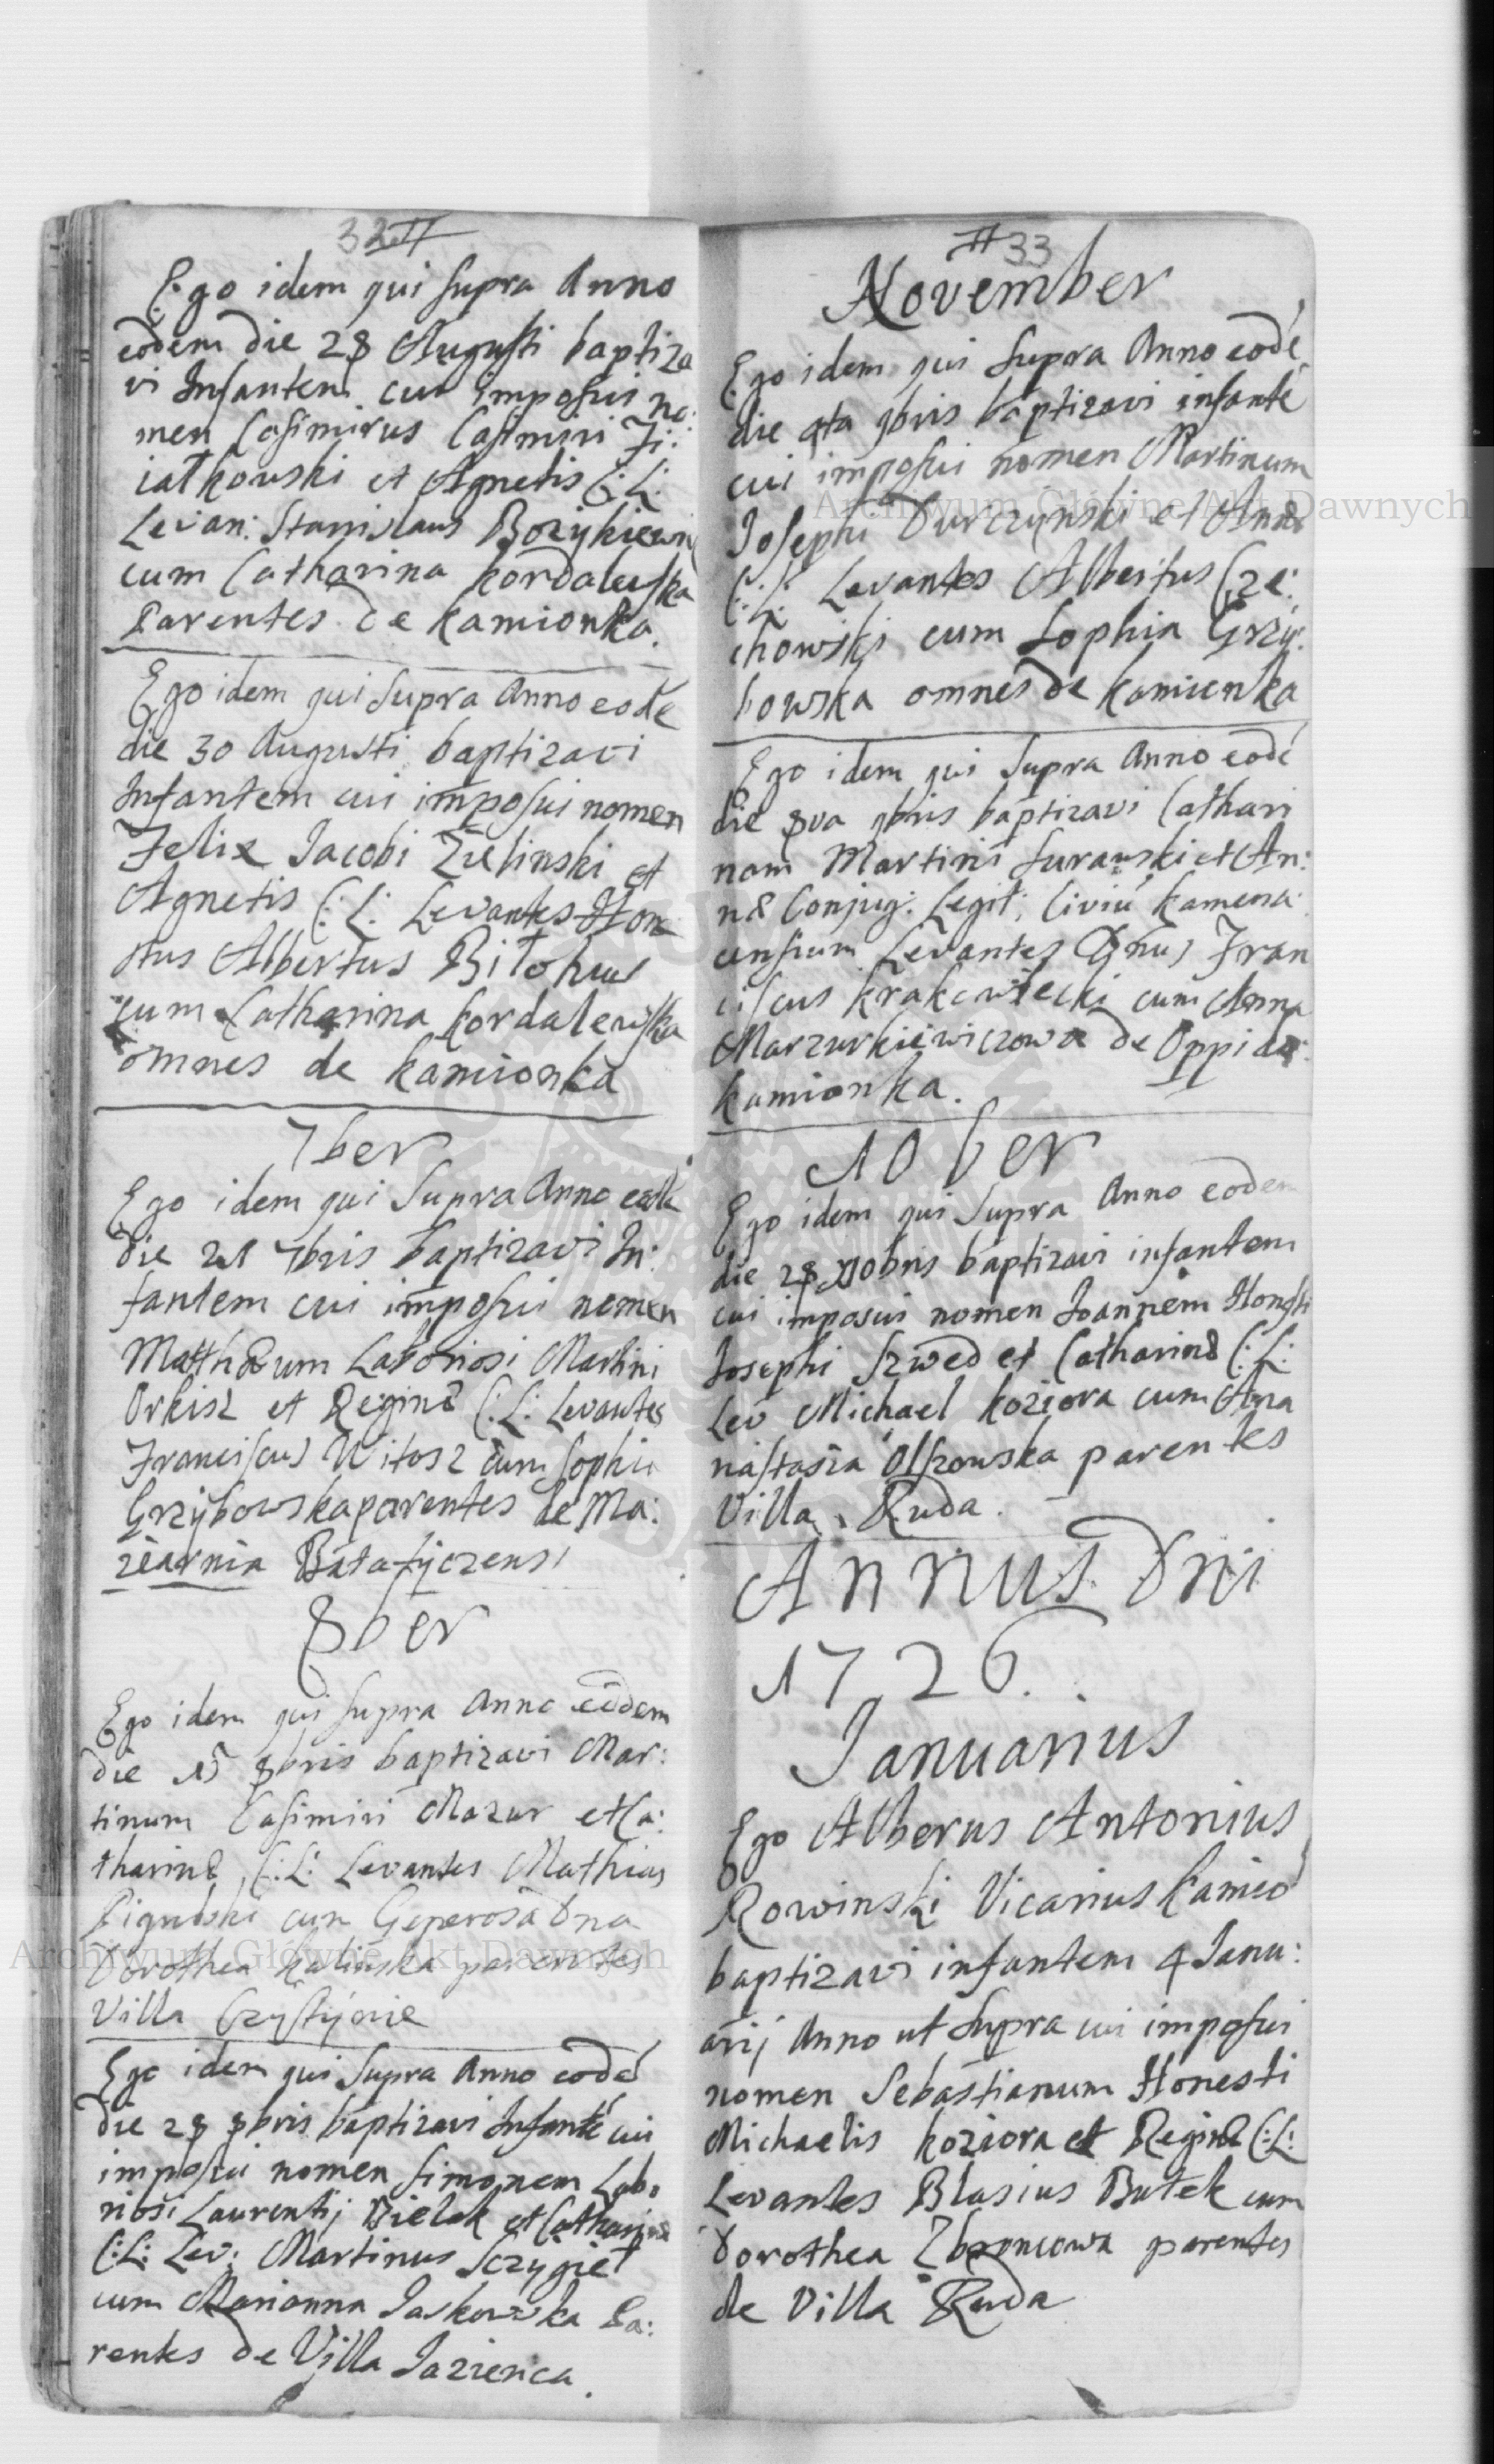 32
Ego idem qui supra Anno
eodem die 28 Augusti baptiza
vi Infantem cui imposui no:
men Casimirus Casimiri Fi:
iałkowski et Agnetis C: L:
Levan: Stanislaus Bozykiewi
cum Catharina Kordalewska
Parentes de Kamionka.
Ego idem qui supra Anno eode
die 30 Augusti baptizavi
Infantem cui imposui nomen
Felix Jacobi Zielinski et
Agnetis C: L: Levantes Hone
stus Albertus
cum Catharina Kordalewska
omnes de Kamionka
7ber
Ego idem qui supra Anno eode
die 21 7bris baptizavi In:
fantem cui imposui nomen
Matthæum Laboriosi Martini
Orkisz et Reginæ C: L: Levantes
Franciscus Witosz cum Sophia
Grzybowska parentes de Ma:
ziarnia Batatyczensi
8ber
Ego idem qui supra Anno eodem
die 15 8bris baptizavi Mar:
tinum Casimiri Mazur et Ca:
tharinæ C: L: Levantes Mathias
cum Generosa Dna
Dorothea Kalinska parentes
Villa
Ego idem qui supra Anno eodé
die 28 8bris baptizavi Infanté cui
imposui nomen Simonem Labo
riosi Laurentij Bielak et Catharinæ
C: L: Lev: Martinus Sczygieł
cum Marianna Jaskowska Pa:
rentes de Villa Jazienca.
33
November
Ego idem qui supra Anno eodé
die 4ta 9bris baptizavi infanté
cui imposui nomen Martinum
Josephi Durczynski et Annæ
C: L: Levantes Albertus Cze:
chowski cum Sophia Grzy:
bowska omnes de Kamionka
Ego idem qui supra Anno eodé
die 8va 9bris baptizavi Cathari
nam Martini Surawski et An:
næ Conjug: Legit: Civiú Kamena:
censium Levantes Gnus Fran
ciscus Krakowiecki cum Anna
Marzurkiewiczowa de Oppido
Kamionka.
10ber
Ego idem qui supra Anno eodem
die 28 Xbris baptizavi infantem
cui imposui nomen Joannem Honesti
Josephi Szwed et Catharinæ C: L:
Lev Michael Koziora cum Ana
nastazia Olszowska parentes
Villa Ruda.
Annus Dni
1726.
Januarius
Ego Alberus Antonius
Rowinski Vicarius Kamio
baptizavi infantem 4 Janu:
arij Anno ut supra cui imposui
nomen Sebastianum Honesti
Michaelis Koziora et Reginæ C: L:
Levantes Blasius Butek cum
Dorothea Zbroncowa parentes
de Villa Ruda
Archiwum Główne Akt Dawnych
Archiwum Główne Akt Dawnych